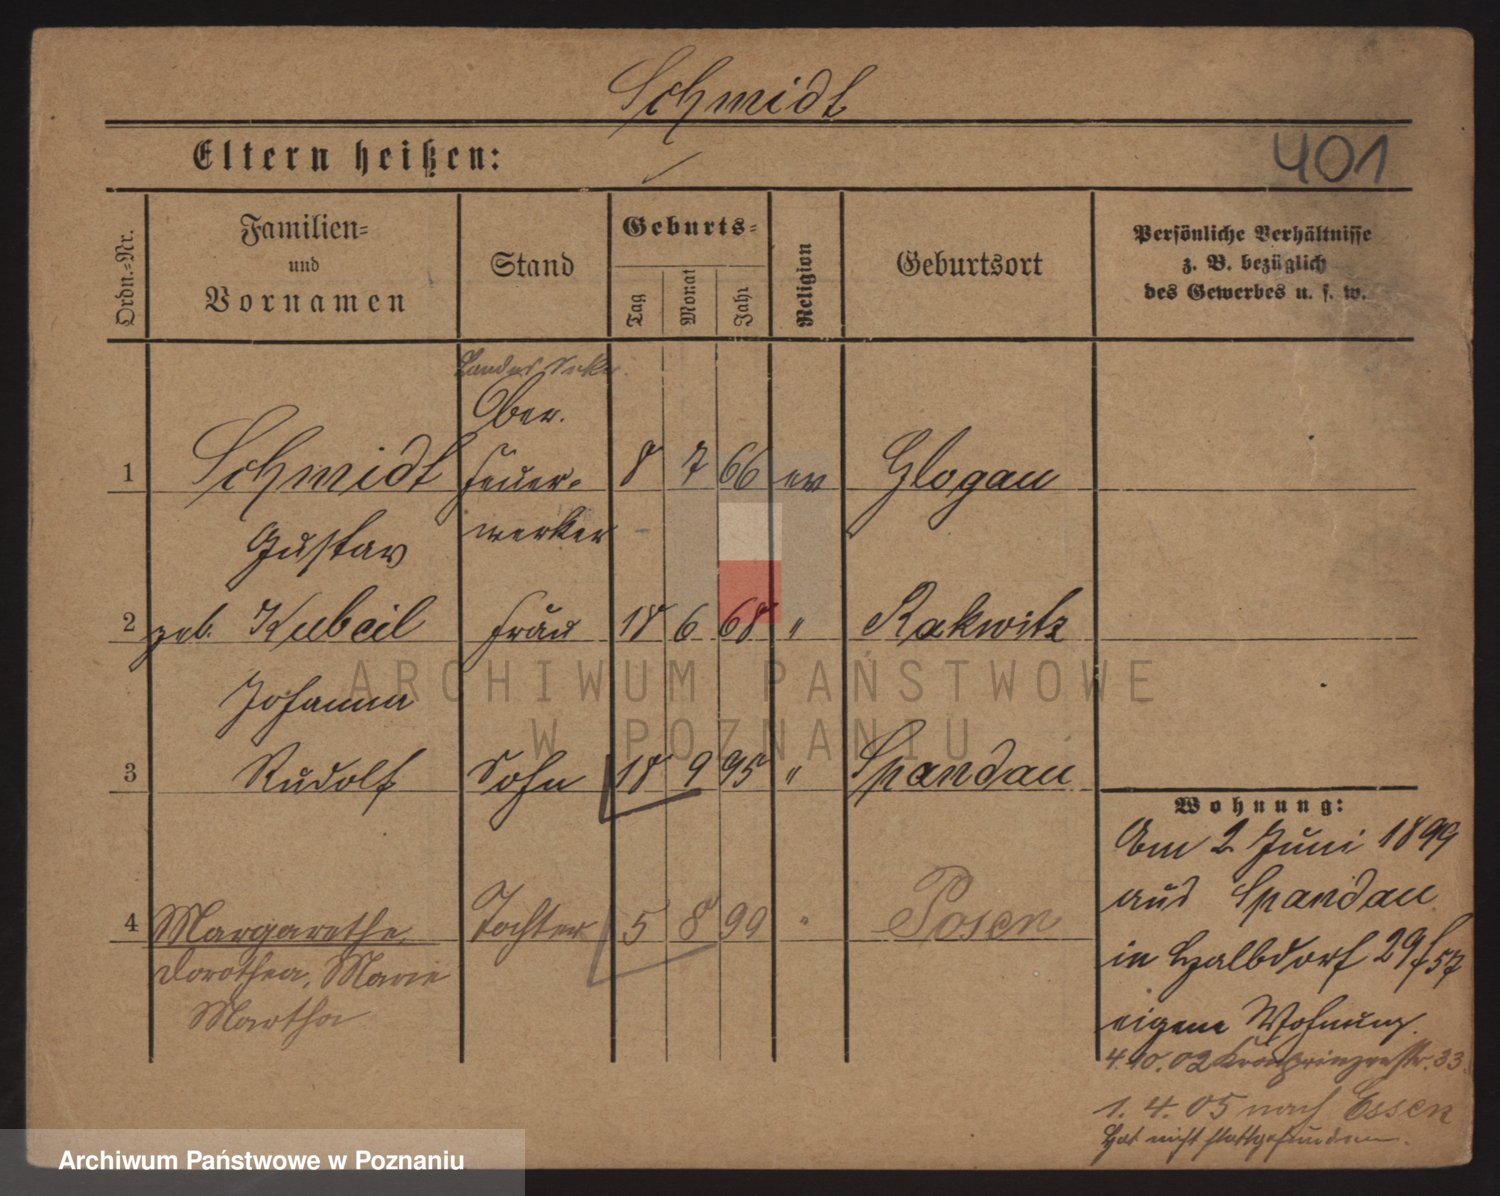 Schmidt
Eltern heißen:
401
Ordn.-Nr.
Familien-
und
Vornamen
Stand
Geburts-
Tag
Monat
Jahr
Religion
Geburtsort
Persönliche Verhältnisse
z. B. bezüglich
des Gewerbes u. s. w.
Ober-
1 Schmidt Feuer- 8 7 66 ev Glogau
Gustav werker
2 geb. Kubeil Frau 18 6 68 " Rakwitz
Johanna
3 Rudolf Sohn 18 9 95 " Spandau
4 Margarethe Tochter 5 8 99 " Posen
Dorothea, Marie
Martha
Wohnung:
Am 2 Juni 1899
aus Spandau
in Halbdorf 29
eigene Wohnung.
4.10.02 Kronprinzenstr. 33.
1. 4. 05 nach Essen
Hat nicht stattgefunden.
ARCHIWUM PAŃSTWOWE
W POZNANIU
Archiwum Państwowe w Poznaniu